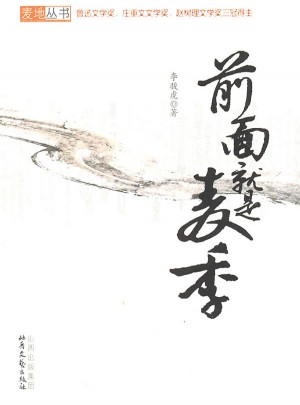 麦地丛书 鲁迅文学奖、庄重文文学奖、赵树理文学奖三冠得主
李骏虎◎著
前面就是麦季
山西出版集团
北岳文艺出版社